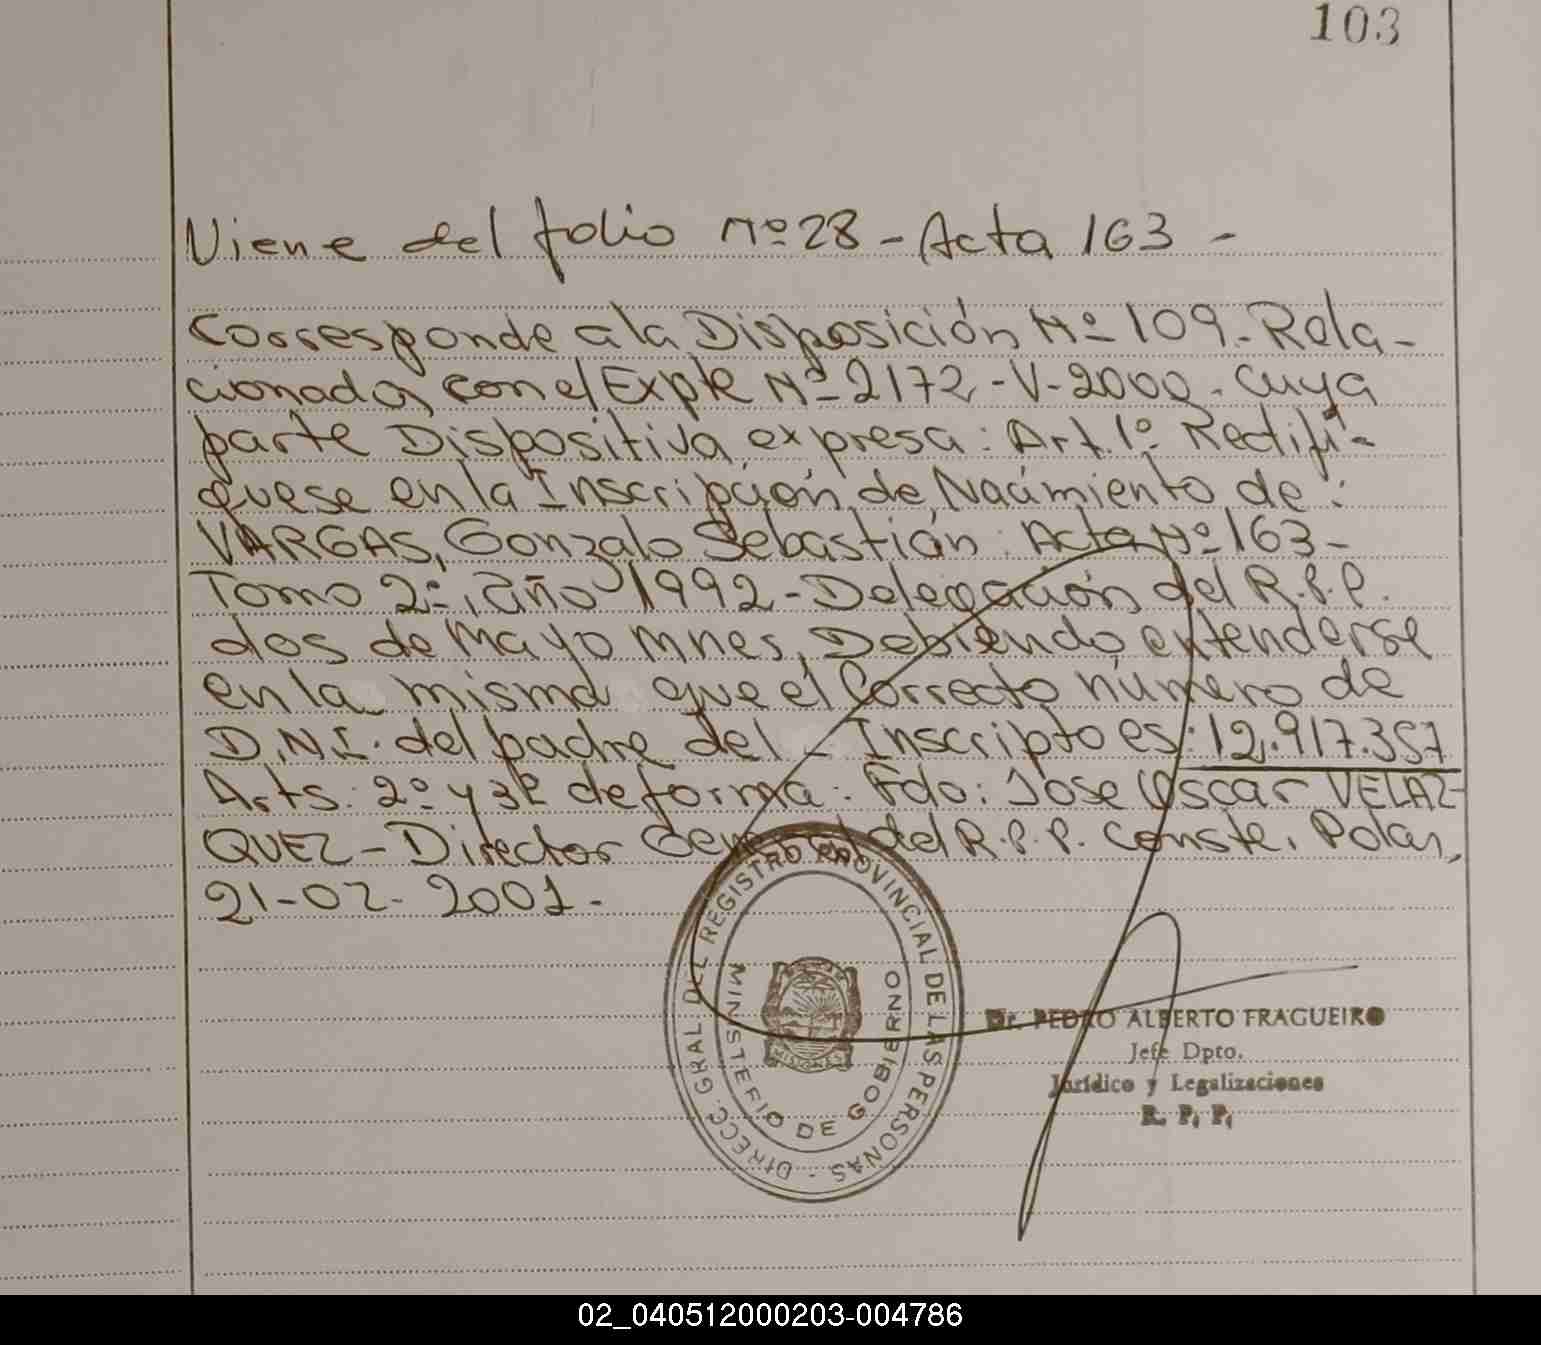 103
Viene del folio Nº 28 - Acta 163 -
Corresponde a la Disposición Nº 109.- Rela-
cionada con el Expte Nº 2172 - V - 2000 - cuya
parte Dispositiva expresa: Art. 1º Rectifi-
quese en la Inscripción de Nacimiento de:
VARGAS, Gonzalo Sebastián. Acta Nº 163 -
Tomo 2º, año 1992 - Delegación del R.P.P.
dos de Mayo Mnes, Debiendo entenderse
en la misma que el Correcto número de
D.N.I. del padre del - Inscripto es: 12.917.357
Arts. 2º y 3º de forma. Fdo: Jose Oscar VELAZ-
QUEZ - Director General del R.P.P. Conste. Pdas,
21-02-2001.-
DIRECC. GRAL DEL REGISTRO PROVINCIAL DE LAS PERSONAS -
MINISTERIO DE GOBIERNO
MISIONES
Dr. PEDRO ALBERTO FRAGUEIRO
Jefe Dpto.
Jurídico y Legalizaciones
R. P. P.
02_040512000203-004786